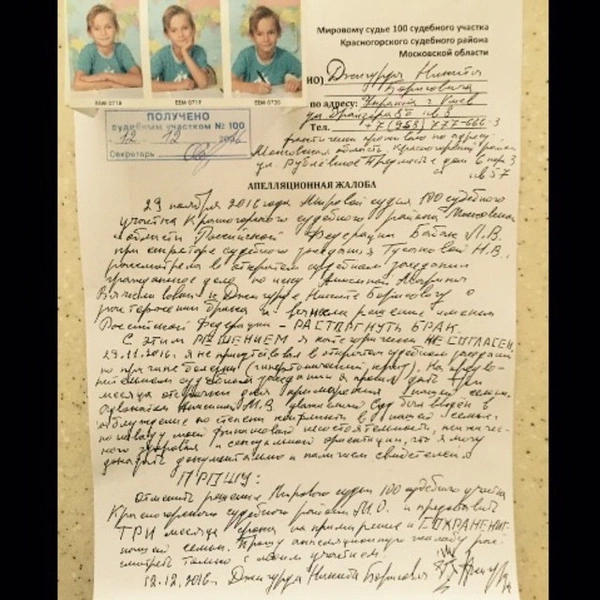 Мировому судье 100 судебного участка
Красногорского судебного района
Московской области
ИО) Джигурда Никита
Борисович
по адресу: Украина г. Киев
Тел. +7(953) 777-666-3
фактически проживаю по адресу:
Московская область, Красногорский район
ЕЕМ 0718
ЕЕМ 0719
ЕЕМ 0720
ПОЛУЧЕНО
судебным участком № 100
12 12 2016
Секретарь
АПЕЛЛЯЦИОННАЯ ЖАЛОБА
29 ноября 2016 года Мировой судья 100 судебного
участка Красногорского судебного района Московской
области Российской Федерации Л.В.
при секретаре судебного заседания Н.В.
рассмотрела в открытом судебном заседании
гражданское дело по иску Анисиной Марины
Вячеславовны к Джигурде Никите Борисовичу о
расторжении брака и вынесла решение именем
Российской Федерации - РАСТОРГНУТЬ БРАК.
С этим РЕШЕНИЕМ я категорически НЕ СОГЛАСЕН.
29.11.2016. я не присутствовал в открытом судебном заседании
по причине болезни (гипертонический криз). На
судебном заседании я просил дать три
месяца отсрочки для примирения нашей семьи.
суд был введён в
заблуждение по степени конфликта в нашей семье
по поводу моей финансовой несостоятельности, психического
здоровья и сексуальной ориентации, что я могу
доказать документально и наличием свидетелей.
ПРОШУ:
Отменить решение Мирового судьи 100 судебного участка
Красногорского судебного района М.О. и предоставить
ТРИ месяца срока на примирение и СОХРАНЕНИЕ
нашей семьи. Прошу апелляционную жалобу рас-
смотреть только с моим участием.
12.12.2016г. Джигурда Никита Борисович